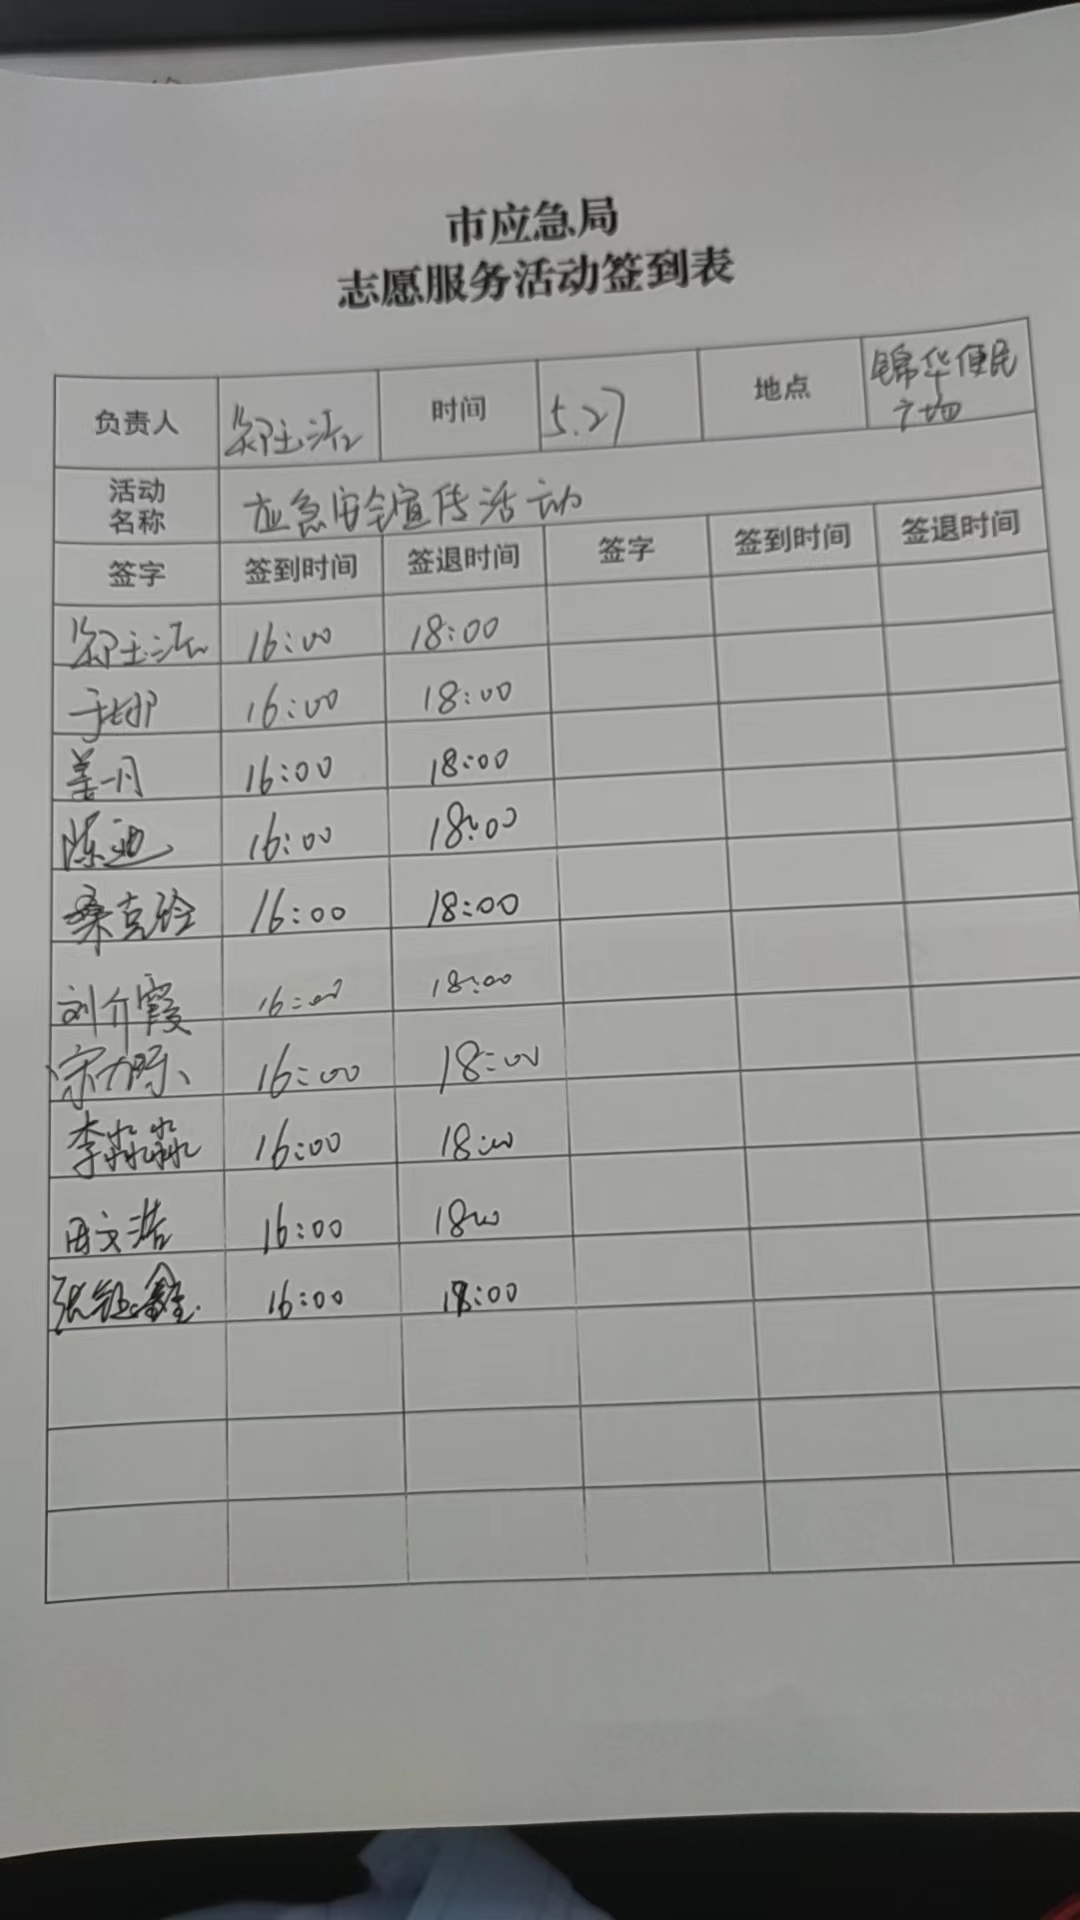 市应急局
志愿服务活动签到表
负责人 时间 5.27 地点 锦华便民
广场
活动
名称 应急安全宣传活动
签字 签到时间 签退时间 签字 签到时间 签退时间
16:00 18:00
于娜 16:00 18:00
姜一月 16:00 18:00
陈迪 16:00 18:00
桑克玲 16:00 18:00
刘介霞 16:00 18:00
16:00 18:00
李淼淼 16:00 18:00
田文浩 16:00 18:00
张钰鑫 16:00 18:00